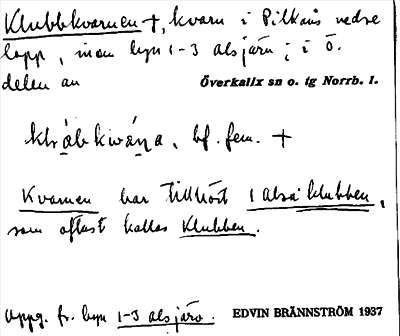 Klubbkvarnen +, kvarn i Pilkåns nedre
lopp, inom byn 1-3 alsjärv; i ö.
delen av Överkalix sn o. tg Norrb. l.
bf. fem. +
Kvarnen har tillhört 1 alsa klubben,
som oftast kallas Klubben.
Uppg. fr. byn 1-3 alsjärv. EDVIN BRÄNNSTRÖM 1937